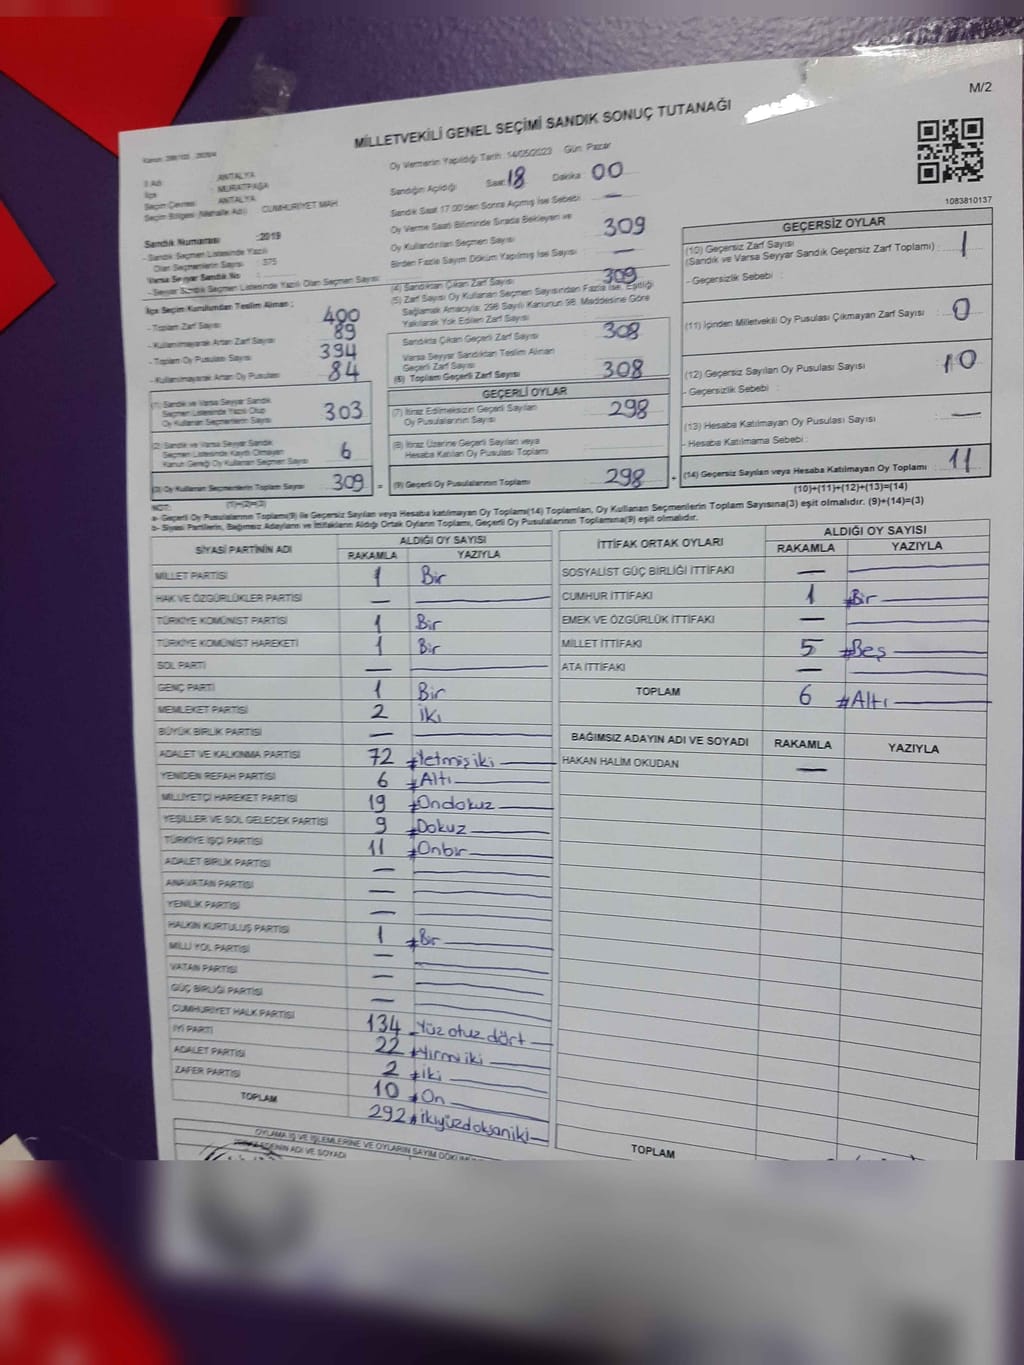 M/2
MİLLETVEKİLİ GENEL SEÇİMİ SANDIK SONUÇ TUTANAĞI
İl Adı : ANTALYA
İlçe : MURATPAŞA
Seçim Çevresi : ANTALYA
Seçim Bölgesi (Mahalle Adı) : CUMHURİYET MAH
Sandık Numarası :2019
- Sandık Seçmen Listesinde Yazılı
Olan Seçmenlerin Sayısı : 375
Varsa Seyyar Sandık No :
- Seyyar Sandık Seçmen Listesinde Yazılı Olan Seçmen Sayısı:
İlçe Seçim Kurulundan Teslim Alınan ;
- Toplam Zarf Sayısı 400
- Kullanılmayarak Artan Zarf Sayısı 89
- Toplam Oy Pusulası Sayısı 394
- Kullanılmayarak Artan Oy Pusulası 84
(1) Sandık ve Varsa Seyyar Sandık
Seçmen Listesinde Yazılı Olup
Oy Kullanan Seçmen Sayısı 303
(2) Sandık ve Varsa Seyyar Sandık
Seçmen Listesinde Kayıtlı Olmayan
Kanun Gereği Oy Kullanan Seçmen Sayısı 6
(3) Oy Kullanan Seçmenlerin Toplam Sayısı 309 =
(1)+(2)=(3)
Oy Vermenin Yapıldığı Tarih :14/05/2023 Gün: Pazar
Sandığın Açıldığı Saat: 18 Dakika : 00
Sandık Saat 17:00'den Sonra Açılmış İse Sebebi : —
Oy Verme Saati Bitiminde Sırada Bekleyen ve
Oy Kullandırılan Seçmen Sayısı 309
Birden Fazla Sayım Döküm Yapılmış İse Sayısı : —
(4) Sandıktan Çıkan Zarf Sayısı 309
(5) Zarf Sayısı Oy Kullanan Seçmen Sayısından Fazla İse, Eşitliği
Sağlamak Amacıyla; 298 Sayılı Kanunun 98. Maddesine Göre
Yakılarak Yok Edilen Zarf Sayısı
Sandıkta Çıkan Geçerli Zarf Sayısı 308
Varsa Seyyar Sandıktan Teslim Alınan
Geçerli Zarf Sayısı
(6) Toplam Geçerli Zarf Sayısı 308
GEÇERLİ OYLAR
(7) İtiraz Edilmeksizin Geçerli Sayılan
Oy Pusulalarının Sayısı 298
(8) İtiraz Üzerine Geçerli Sayılan veya
Hesaba Katılan Oy Pusulası Toplamı
(9) Geçerli Oy Pusulalarının Toplamı 298 +
1083810137
GEÇERSİZ OYLAR
(10) Geçersiz Zarf Sayısı
(Sandık ve Varsa Seyyar Sandık Geçersiz Zarf Toplamı) : 1
- Geçersizlik Sebebi :
(11) İçinden Milletvekili Oy Pusulası Çıkmayan Zarf Sayısı : 0
(12) Geçersiz Sayılan Oy Pusulası Sayısı : 10
- Geçersizlik Sebebi :
(13) Hesaba Katılmayan Oy Pusulası Sayısı : —
- Hesaba Katılmama Sebebi :
(14) Geçersiz Sayılan veya Hesaba Katılmayan Oy Toplamı : 11
(10)+(11)+(12)+(13)=(14)
NOT:
a- Geçerli Oy Pusulalarının Toplamı(9) ile Geçersiz Sayılan veya Hesaba katılmayan Oy Toplamı(14) Toplamları, Oy Kullanan Seçmenlerin Toplam Sayısına(3) eşit olmalıdır. (9)+(14)=(3)
b- Siyasi Partilerin, Bağımsız Adayların ve İttifakların Aldığı Ortak Oyların Toplamı, Geçerli Oy Pusulalarının Toplamına(9) eşit olmalıdır.
SİYASİ PARTİNİN ADI ALDIĞI OY SAYISI
RAKAMLA YAZIYLA
MİLLET PARTİSİ 1 Bir
HAK VE ÖZGÜRLÜKLER PARTİSİ —
TÜRKİYE KOMÜNİST PARTİSİ 1 Bir
TÜRKİYE KOMÜNİST HAREKETİ 1 Bir
SOL PARTİ —
GENÇ PARTİ 1 Bir
MEMLEKET PARTİSİ 2 iki
BÜYÜK BİRLİK PARTİSİ —
ADALET VE KALKINMA PARTİSİ 72 #Yetmişiki
YENİDEN REFAH PARTİSİ 6 #Altı
MİLLİYETÇİ HAREKET PARTİSİ 19 #Ondokuz
YEŞİLLER VE SOL GELECEK PARTİSİ 9 #Dokuz
TÜRKİYE İŞÇİ PARTİSİ 11 #Onbir
ADALET BİRLİK PARTİSİ —
ANAVATAN PARTİSİ —
YENİLİK PARTİSİ —
HALKIN KURTULUŞ PARTİSİ 1 #Bir
MİLLİ YOL PARTİSİ —
VATAN PARTİSİ —
GÜÇ BİRLİĞİ PARTİSİ —
CUMHURİYET HALK PARTİSİ 134 Yüzotuzdört
İYİ PARTİ 22 #Yirmiiki
ADALET PARTİSİ 2 #iki
ZAFER PARTİSİ 10 #On
TOPLAM 292 #ikiyüzdoksaniki
İTTİFAK ORTAK OYLARI ALDIĞI OY SAYISI
RAKAMLA YAZIYLA
SOSYALİST GÜÇ BİRLİĞİ İTTİFAKI —
CUMHUR İTTİFAKI 1 #Bir
EMEK VE ÖZGÜRLÜK İTTİFAKI —
MİLLET İTTİFAKI 5 #Beş
ATA İTTİFAKI —
TOPLAM 6 #Altı
BAĞIMSIZ ADAYIN ADI VE SOYADI RAKAMLA YAZIYLA
HAKAN HALİM OKUDAN —
TOPLAM
OYLAMA İŞ VE İŞLEMLERİNE VE OYLARIN SAYIM DÖKÜM
ADI VE SOYADI